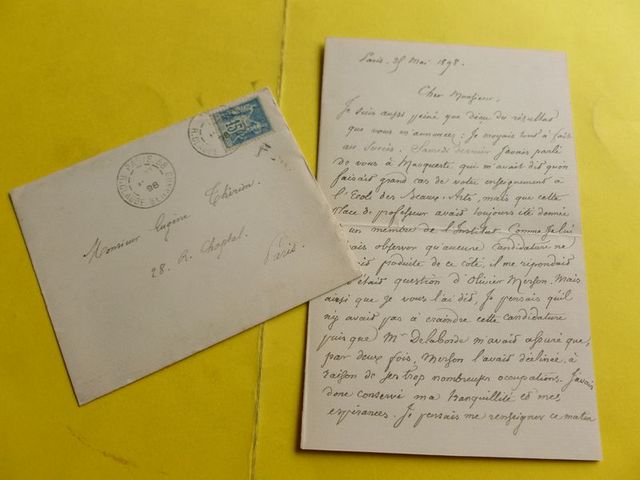 PARIS
98
R.D'AMSTERDAM
15
Monsieur Eugène Thirion
28. R. Chaptal.
Paris.
Paris. 25 Mai 1898.
Cher Monsieur,
Je suis aussi peiné que déçu du résultat
que vous m'annoncez : Je croyais tout à fait
au succès. Samedi dernier j'avais parlé
de vous à Marqueste qui m'avait dit qu'on
faisait grand cas de votre enseignement à
l'Ecole des Beaux-Arts, mais que cette
place de professeur avait toujours été donnée
à un membre de l'Institut. Comme je lui
faisais observer qu'aucune candidature ne
s'était produite de ce coté, il me répondait
qu'il était question d'Olivier Merson. Mais
ainsi que je vous l'ai dit, Je pensais qu'il
n'y avait pas à craindre cette candidature
puis que Mr Delaborde m'avait assuré que,
par deux fois, Merson l'avait déclinée, à
raison de ses trop nombreuses occupations. J'avais
donc conservé ma tranquillité et mes
espérances. Je pensais me renseigner ce matin